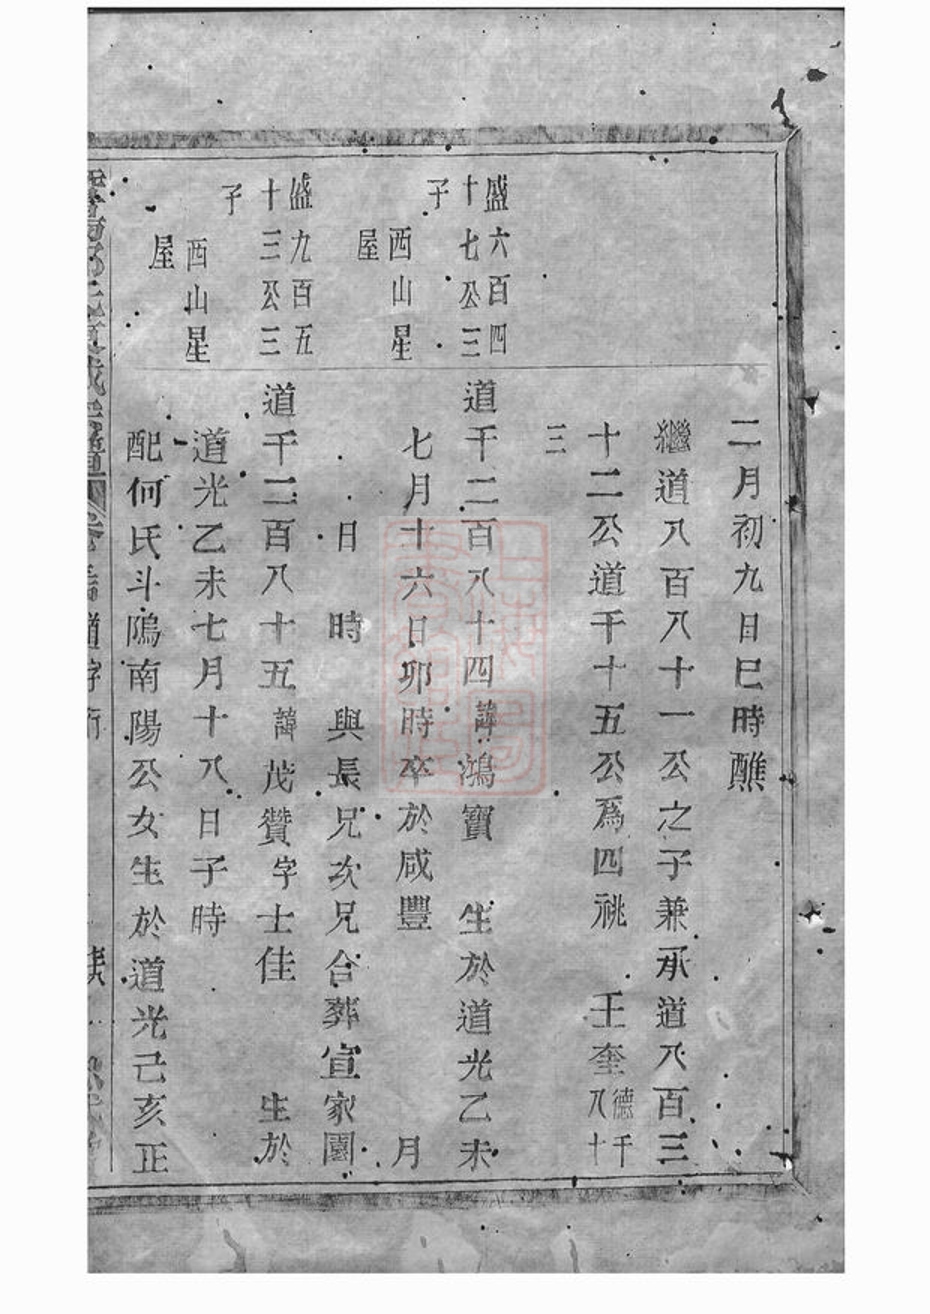 二月初九日巳時醮
繼道八百八十一公之子兼承道八百三
十二公道千十五公爲四祧　壬奎德千八十
三
盛六百四十七公三子
西山星屋
道千二百八十四諱鴻寶　生於道光乙未
七月十六日卯時卒於咸豐　月
日　時　與長兄次兄合葬宣家園
盛九百五十三公三子
西山星屋
道千二百八十五諱茂贊字士佳　生於
道光乙未七月十八日子時
配何氏斗隖南陽公女生於道光己亥正